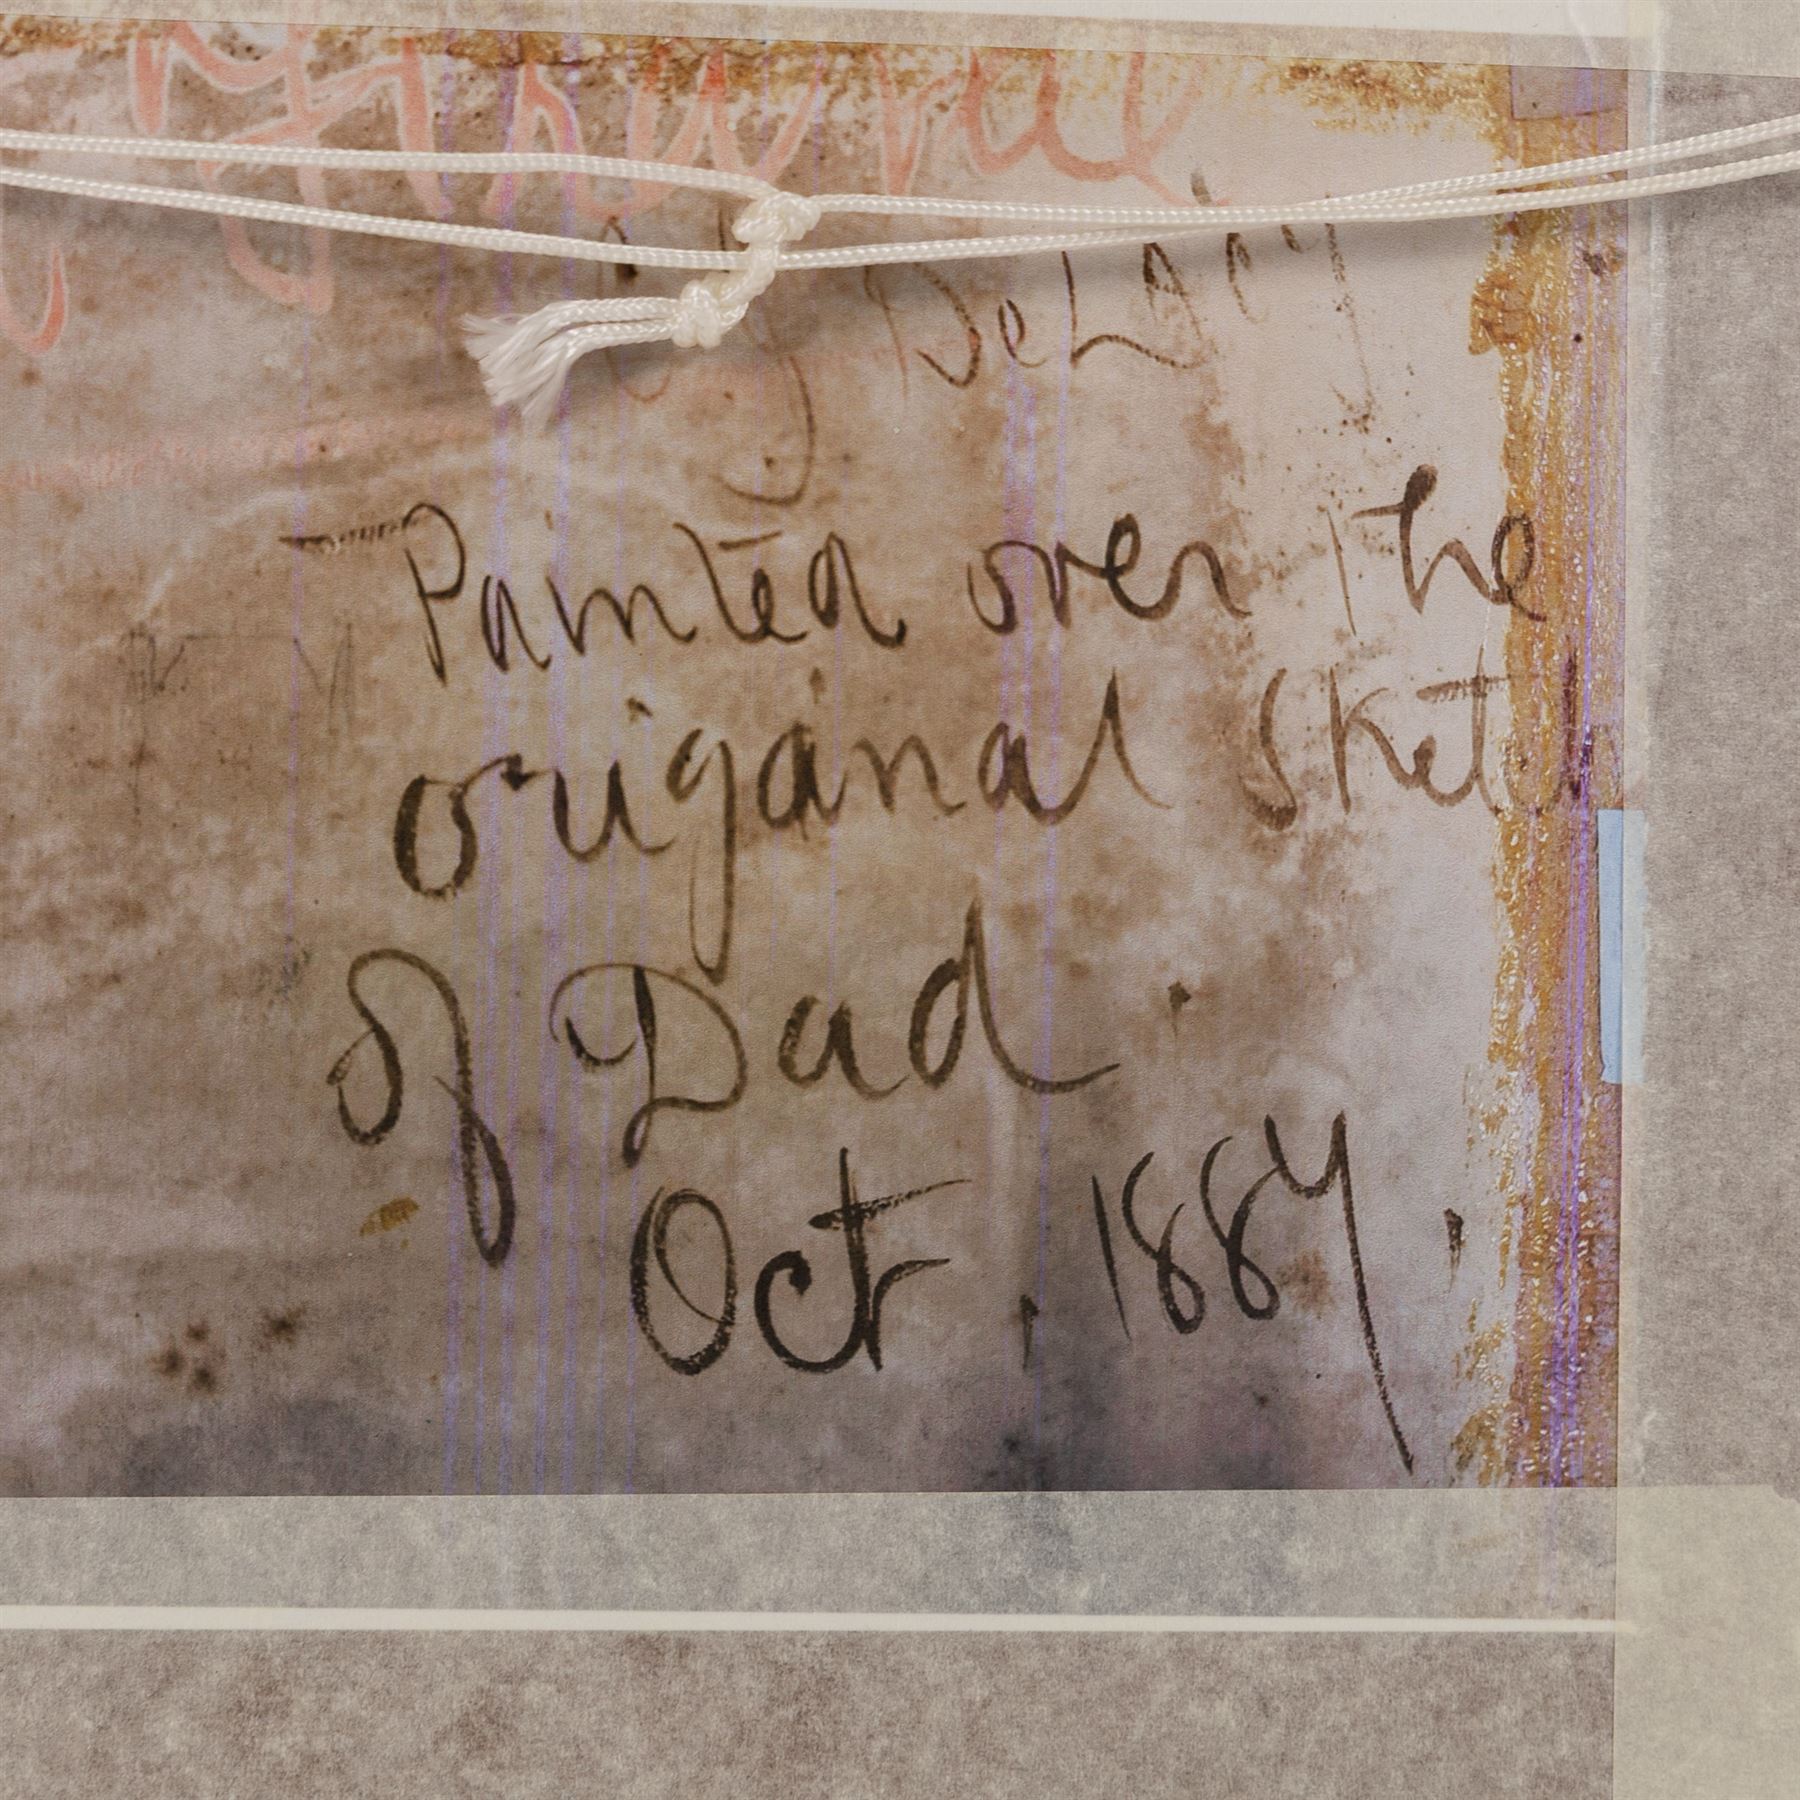 by DeLacy
Painted over the
origanal sketch
of Dad.
Oct. 1884.